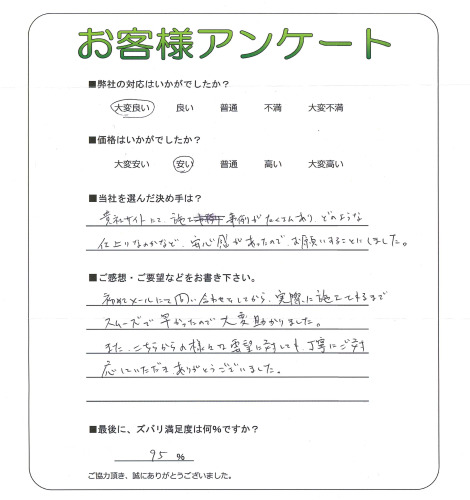 お客様アンケート
■弊社の対応はいかがでしたか？
大変良い 良い 普通 不満 大変不満
■価格はいかがでしたか？
大変安い 安い 普通 高い 大変高い
■当社を選んだ決め手は？
貴社サイトにて、施工事例がたくさんあり、どのような
仕上りなのかなど、安心感があったので、お願いすることにしました。
■ご感想・ご要望などをお書き下さい。
初めてメールにて問い合わせをしてから、実際に施工するまで
スムーズで早かったので大変助かりました。
また、こちらからの様々な要望に対しても、丁寧にご対
応いただきありがとうございました。
■最後に、ズバリ満足度は何％ですか？
95 ％
ご協力頂き、誠にありがとうございました。